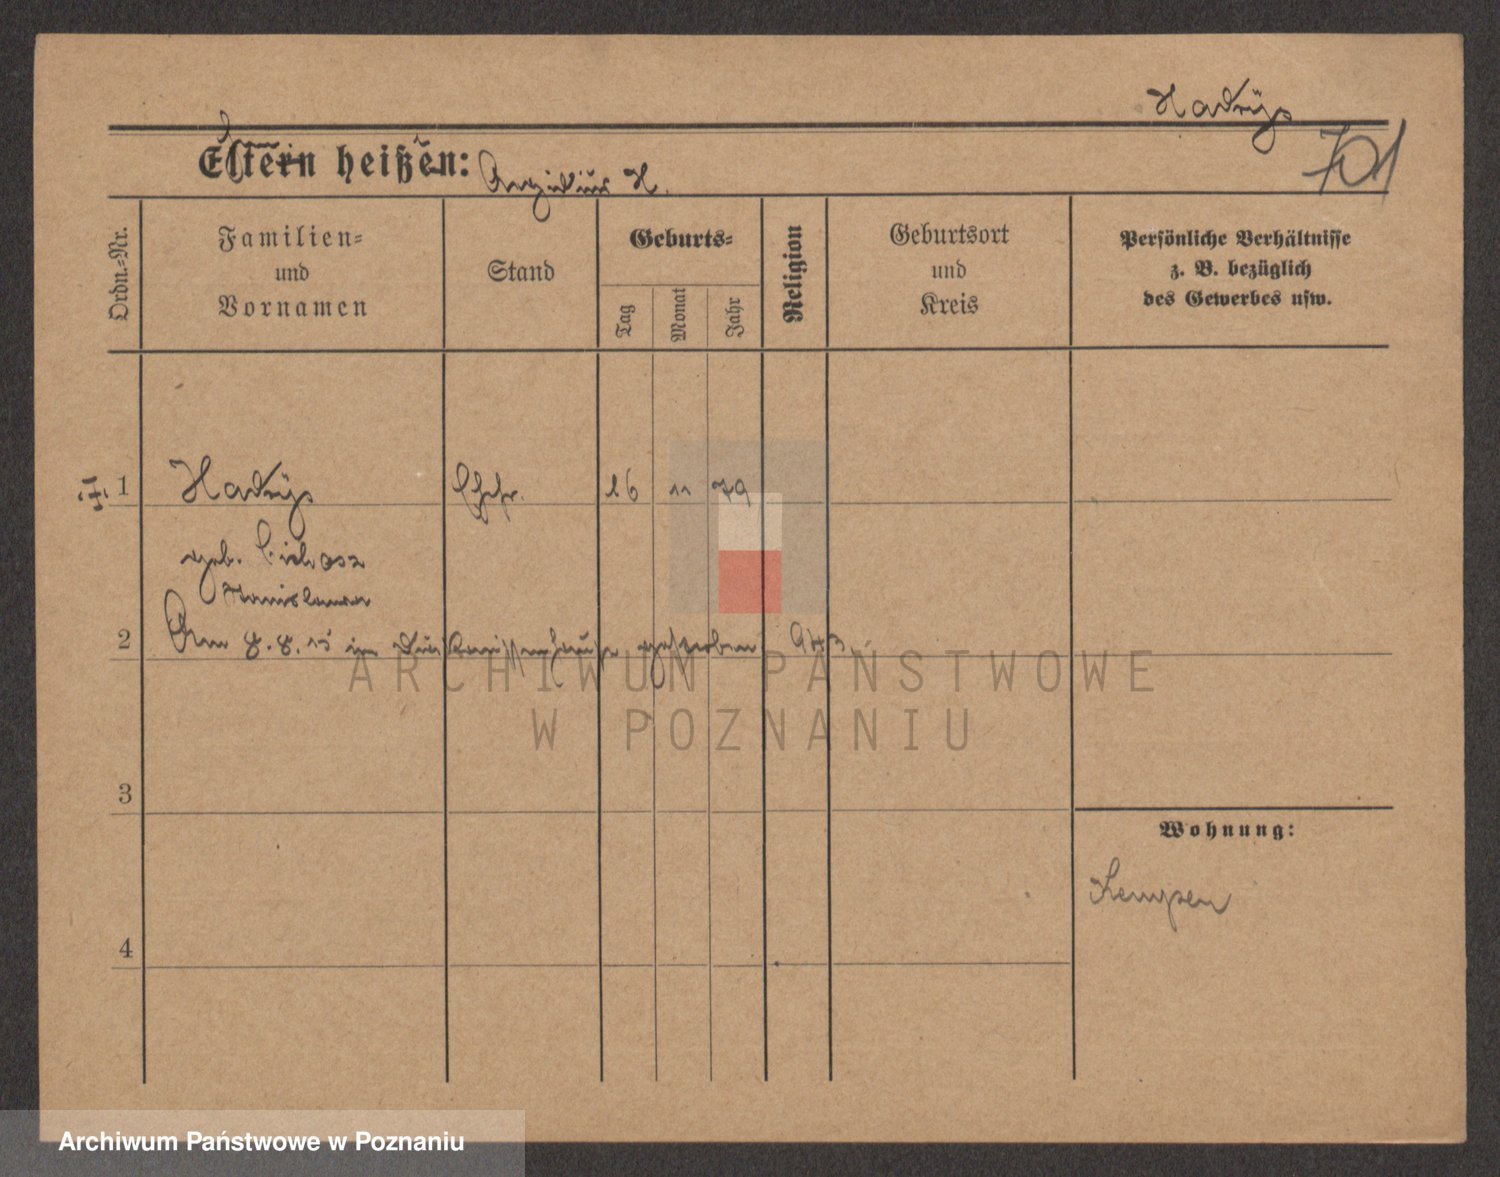 Hadrÿs
701
Eltern heißen: H.
Ordn.-Nr.
Familien-
und
Vornamen
Stand
Geburts-
Tag
Monat
Jahr
Religion
Geburtsort
und
Kreis
Persönliche Verhältnisse
z. B. bezüglich
des Gewerbes usw.
1 Hadrÿs Ehefr. 16 11 79
geb. Cichosz
Stanislawa
2 Am 8. 8. 15 im gestorben
3
4
Wohnung:
Kempen
ARCHIWUM PAŃSTWOWE
W POZNANIU
Archiwum Państwowe w Poznaniu